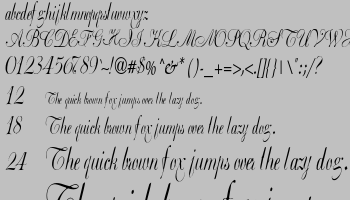 abcdefghijklmnopqrstuvwxyz
ABCDEFGHIJKLMNOPQRSTUVWX
0123456789~!@#$%^&*()-_+=>,<.[]{}|\`:;/?
12 The quick brown fox jumps over the lazy dog.
18 The quick brown fox jumps over the lazy dog.
24 The quick brown fox jumps over the lazy dog.